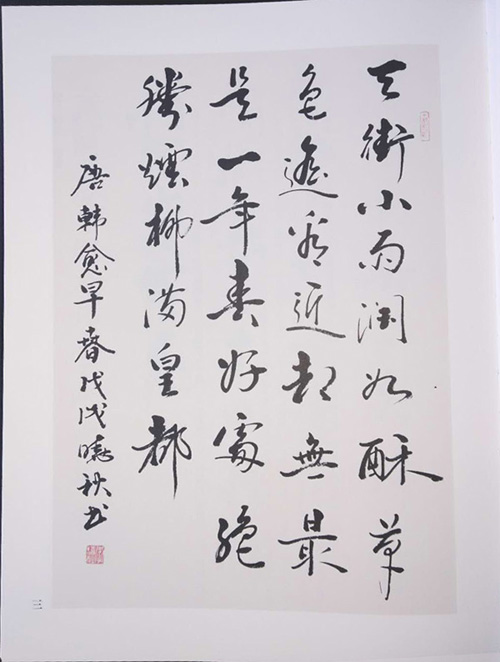 天街小雨润如酥草
色遥看近却無最
是一年春好處絕
勝煙柳满皇都
唐韩愈早春戊戌曉秋书
三